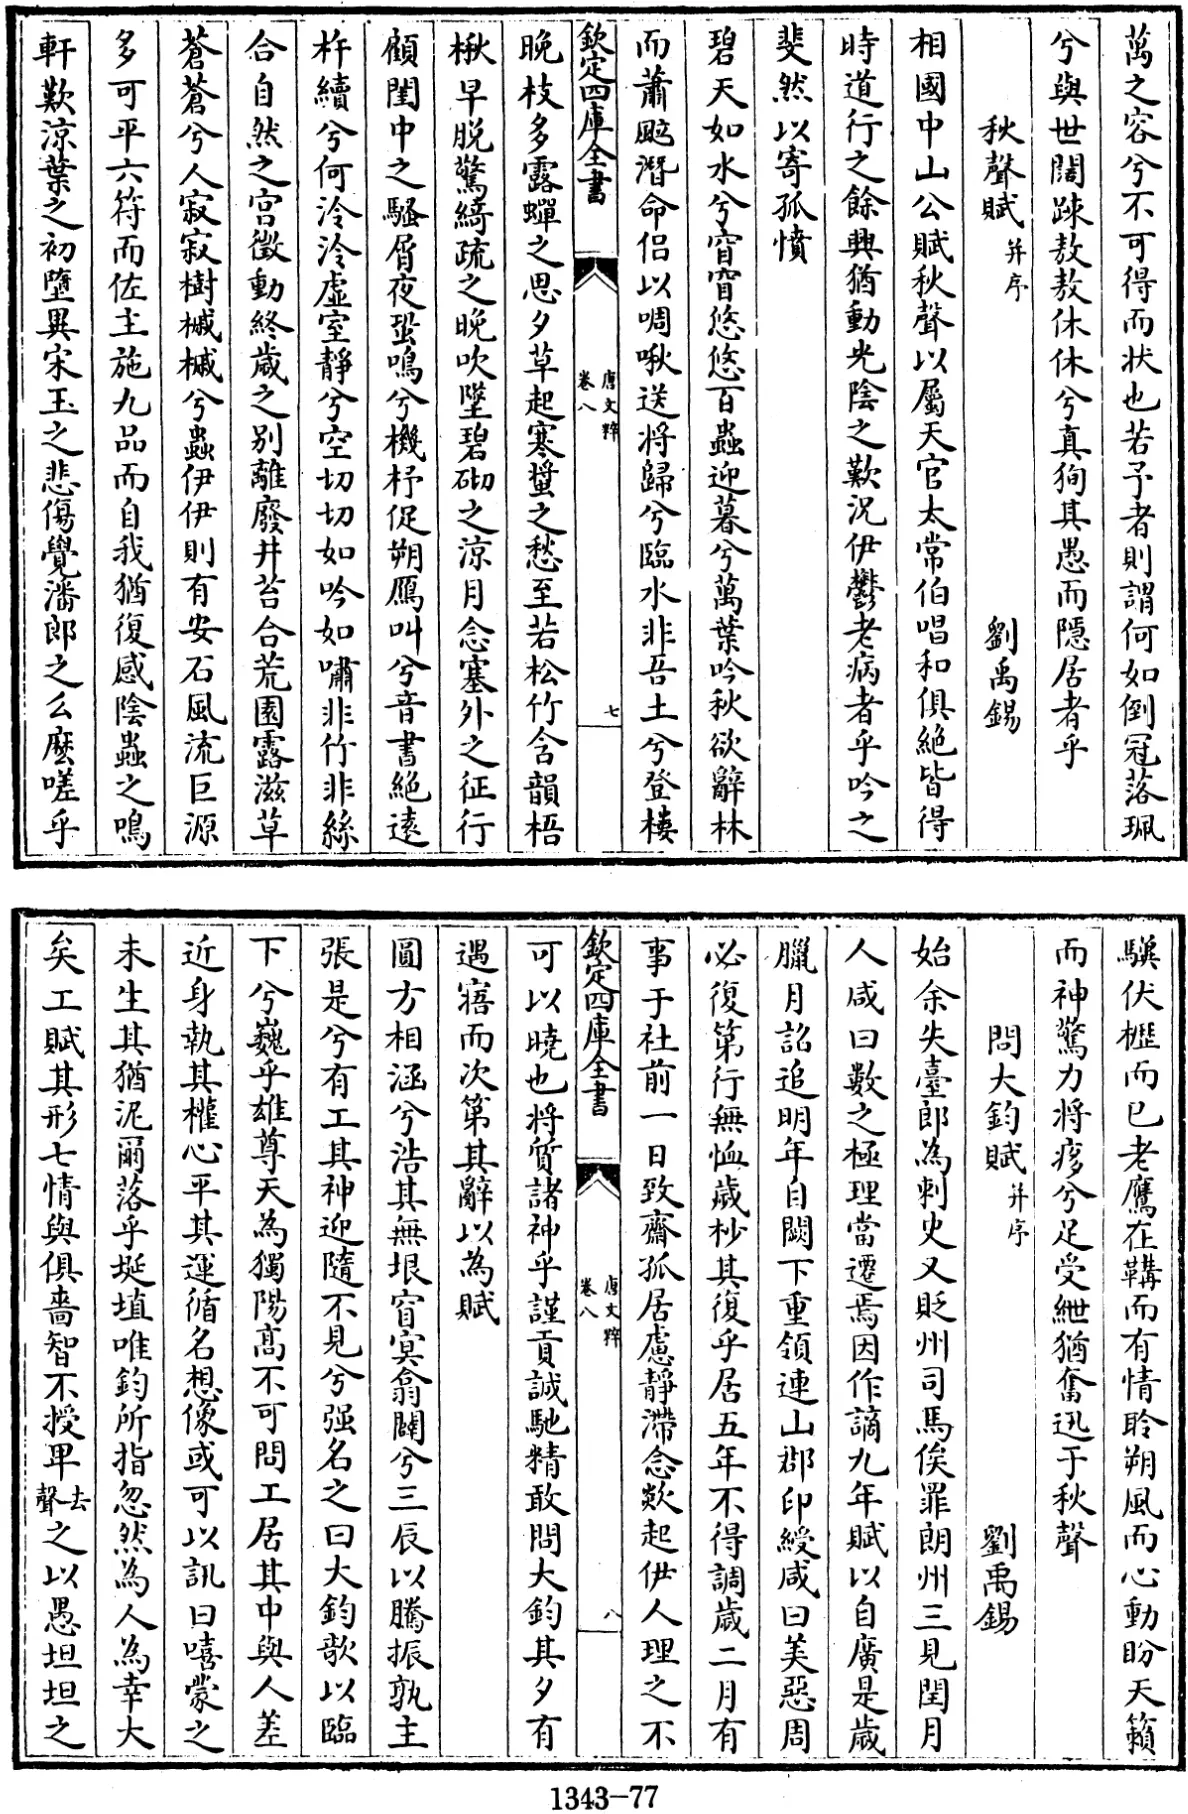 萬之容兮不可得而狀也若予者則謂何如倒冠落珮
兮與世闊踈敖敖休休兮真徇其愚而隱居者乎
秋聲賦 并序 劉禹錫
相國中山公賦秋聲以屬天官太常伯唱和俱絶皆得
時道行之餘興猶動光陰之歎況伊鬱老病者乎吟之
斐然以寄孤憤
碧天如水兮窅窅悠悠百蟲迎暮兮萬葉吟秋欲辭林
而蕭颸潛命侣以啁啾送將歸兮臨水非吾土兮登樓
欽定四庫全書 唐文粹 卷八 七
晚枝多露蟬之思夕草起寒螿之愁至若松竹含韻梧
楸早脱驚綺疏之晩吹墜碧砌之涼月念塞外之征行
顧閨中之騷屑夜蛩鳴兮機杼促朔鴈叫兮音書絶遠
杵續兮何泠泠虛室靜兮空切切如吟如嘯非竹非絲
合自然之宫徵動終歲之别離廢井苔合荒園露滋草
蒼蒼兮人寂寂樹槭槭兮蟲伊伊則有安石風流巨源
多可平六符而佐主施九品而自我猶復感陰蟲之鳴
軒歎涼葉之初墮異宋玉之悲傷覺潘郎之么麽嗟乎
驥伏櫪而已老鷹在鞲而有情聆朔風而心動盼天籟
而神驚力將痑兮足受紲猶奮迅于秋聲
問大鈞賦 并序 劉禹錫
始余失臺郎為刺史又貶州司馬俟罪朗州三見閏月
人咸曰數之極理當遷焉因作謫九年賦以自廣是歲
臘月詔追明年自闕下重領連山郡印綬咸曰美惡周
必復第行無恤歲杪其復乎居五年不得調歲二月有
事于社前一日致齋孤居慮靜滯念欻起伊人理之不
欽定四庫全書 唐文粹 卷八 八
可以曉也將質諸神乎謹貢誠馳精敢問大鈞其夕有
遇寤而次第其辭以為賦
圓方相涵兮浩其無垠窅冥翕闢兮三辰以騰振孰主
張是兮有工其神迎隨不見兮强名之曰大鈞歌以臨
下兮巍乎雄尊天為獨陽高不可問工居其中與人差
近身執其權心平其運循名想像或可以訊曰嘻蒙之
未生其猶泥爾落乎埏埴唯鈞所指忽然為人為幸大
矣工賦其形七情與俱嗇智不授畀去聲之以愚坦坦之
1343-77